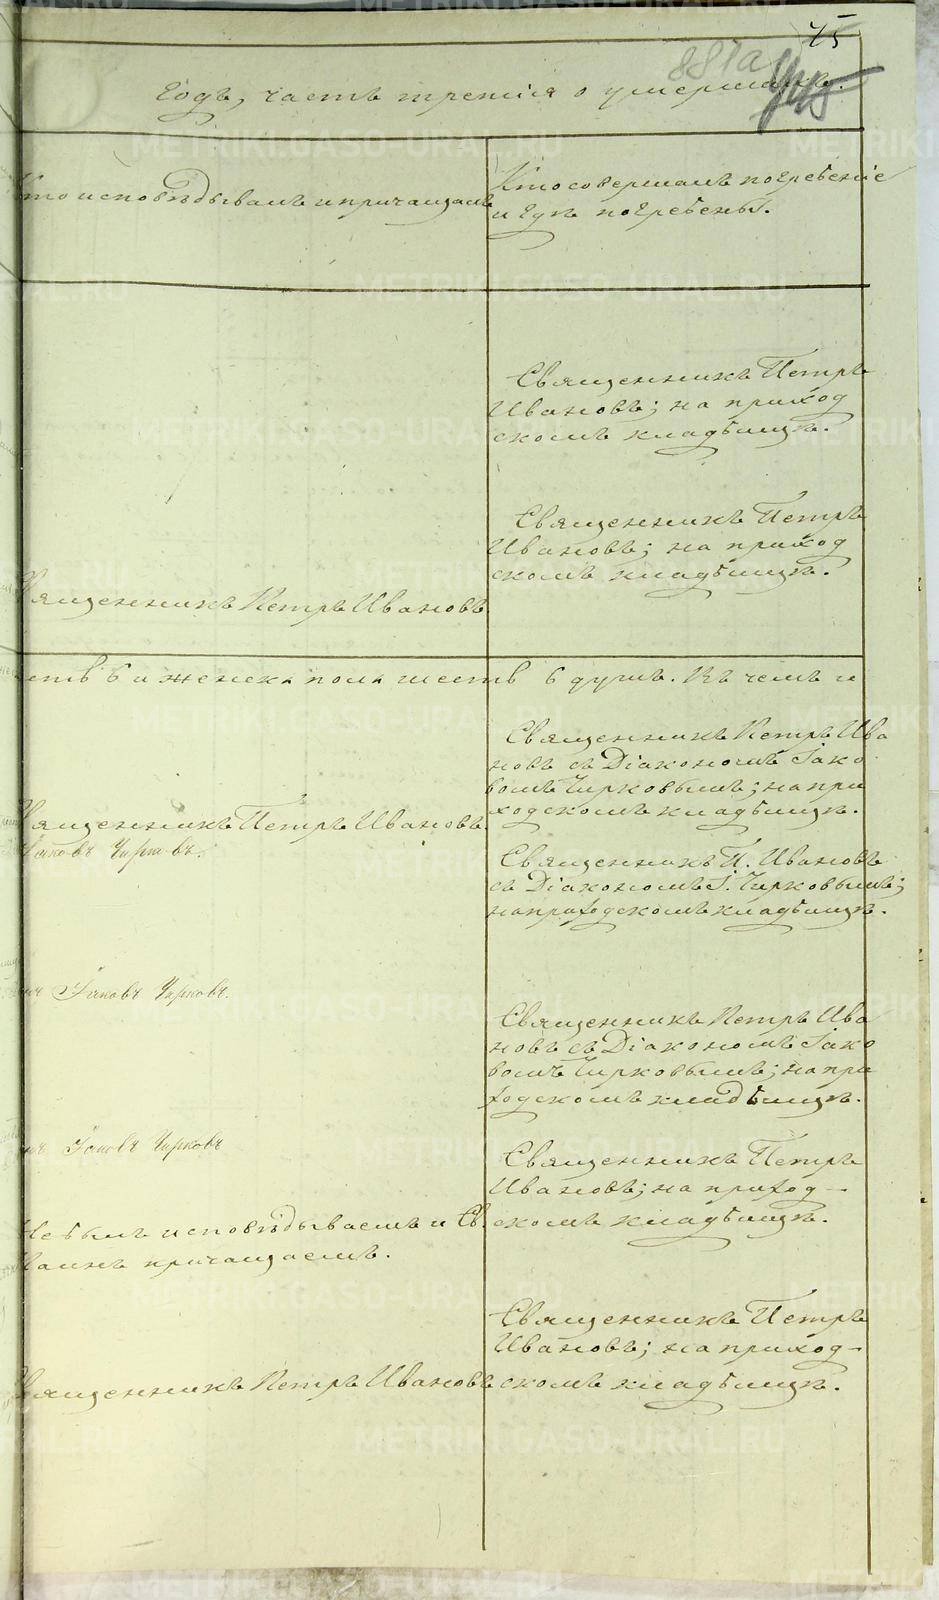 45
881а
Годъ, часть третія о умершихъ.
Кто исповѣдывалъ и причащалъ
Кто совершалъ погребеніе
и гдѣ погребены.
Священникъ Петръ
Ивановъ; на приход
скомъ кладбищѣ.
Священникъ Петръ
Ивановъ; на приход
скомъ кладбищѣ.
Священникъ Петръ Ивановъ.
6 и женска пола шесть 6 душъ. Въ чемъ и
Священникъ Петръ Ива
новъ съ Діакономъ Іако
вомъ Чирковымъ; на при
ходскомъ кладбищѣ.
Священникъ Петръ Ивановъ.
Іаковъ Чирковъ.
Священникъ П. Ивановъ
съ Діакономъ І. Чирковымъ;
на приходскомъ кладбищѣ.
Іаковъ Чирковъ.
Священникъ Петръ Ива
новъ съ Діакономъ Іако
вомъ Чирковымъ; на при
ходскомъ кладбищѣ.
Іаковъ Чирковъ
Священникъ Петръ
Ивановъ; на приход-
скомъ кладбищѣ.
Не былъ исповѣдываемъ и Св.
Таинъ причащаемъ.
Священникъ Петръ
Ивановъ; на приход-
скомъ кладбищѣ.
Священникъ Петръ Ивановъ
METRIKI.GASO-URAL.RU